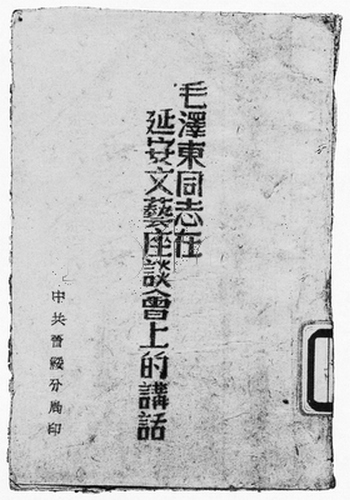 毛澤東同志在
延安文藝座談會上的講話
中共晉綏分局印